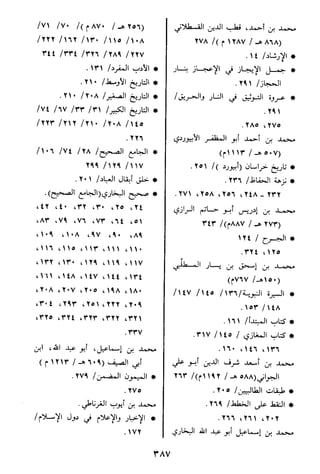 محمد بن أحمد، قطب الدين القسطلاني
(٨٦٨ هـ / ١٢٨٧ م) ٢٧٨
* الإرشاد/ ١٤.
* جمل الإيجاز في الإعجاز بنار
الحجاز/ ٢٩١
* عروة التوثيق في النار والحريق/
٢٩١.
محمد بن أحمد أبو المظفر الأبيوردي
(٥٠٧ هـ / ١١١٣م)
* تاريخ خراسان (أبيورد) / ٢٥١.
* نزهة الحفاظ/ ٢٣٦.
محمد بن إدريس أبو حاتم الرازي
(٢٧٣ هـ / ٨٨٧م) ٣٤٣
* الجرح / ١٢٤
١٢٥، ٣٢٤.
محمد بن إسحق بن يسار المطلبي
(١٥٠هـ / ٧٦٧م)
* السيرة النبوية/ ١٣٦/ ١٤٥/ ١٤٧/
١٤٨/ ١٥٣.
* كتاب المبتدأ/ ١٦١.
* كتاب المغازي / ١٤٥/ ٣١٧.
١٣٦، ١٤٦، ١٦٠.
محمد بن أسعد شرف الدين أبو علي
الجواني (٥٨٨ هـ / ١١٩٢م) ٢٦٣
* طبقات الطالبيين/ ٢٠٥.
* النقط على الخطط/ ٢٦٩.
٢٠٢، ٢٦١، ٢٦٦.
محمد بن إسماعيل أبو عبد الله البخاري
(٢٥٦ هـ / ٨٧٠ م) / ٧٠/ ٧١/
١٠٨/ ١١٥/ ١٣٠/ ١٦٢/ ٢٢٢/
٢٢٧/ ٢٨٩/ ٣٢٦/ ٣٣٤/ ٣٤٤
* الأدب المفرد/ ١٣١.
* التاريخ الأوسط/ ٢١٠.
* التاريخ الصغير/ ٢٠٨/ ٢١٠.
* التاريخ الكبير/ ٣١/ ٣٣/ ٦٧/ ٧٤/
١٤٥/ ٢٠٨/ ٢١٠/ ٢١٢/ ٢٢٣/
٢٢٦.
* الجامع الصحيح/ ٢٨/ ٧٤/ ١٠٦/
١١٧/ ١٢٩/ ٢٩٩
* خلق أفعال العباد/ ٢٠١.
* صحيح البخاري=(الجامع الصحيح).
٢٤، ٢٥، ٣٠، ٣٢، ٤٠، ٤٢،
٥١، ٦٤، ٧٣، ٧٦، ٧٩، ٨٣،
٨٩، ٩٠، ٩٧، ١٠٨، ١٠٩،
١١٠، ١١١، ١١٣، ١١٥، ١١٦،
١١٨، ١١٩، ١٢٩، ١٣٠، ١٣٢،
١٣٤، ١٤٤، ١٤٧، ١٤٨، ١٦١،
١٨٠، ١٩٨، ٢٠٥، ٢٠٧، ٢٠٨،
٢٠٩، ٢٢٢، ٢٥١، ٢٩٣، ٣٠٤،
٣٢١، ٣٢٢، ٣٢٣، ٣٢٤، ٣٢٥،
٣٣٧.
محمد بن إسماعيل، أبو عبد الله، ابن
أبي الصيف (٦٠٩ هـ / ١٢١٣ م)
* الميمون المضمن/ ٢٧٩.
٢٧٥.
محمد بن أيوب الغرناطي.
* الإخبار والإعلام في دول الإسلام/
١٧٢.
٣٨٧